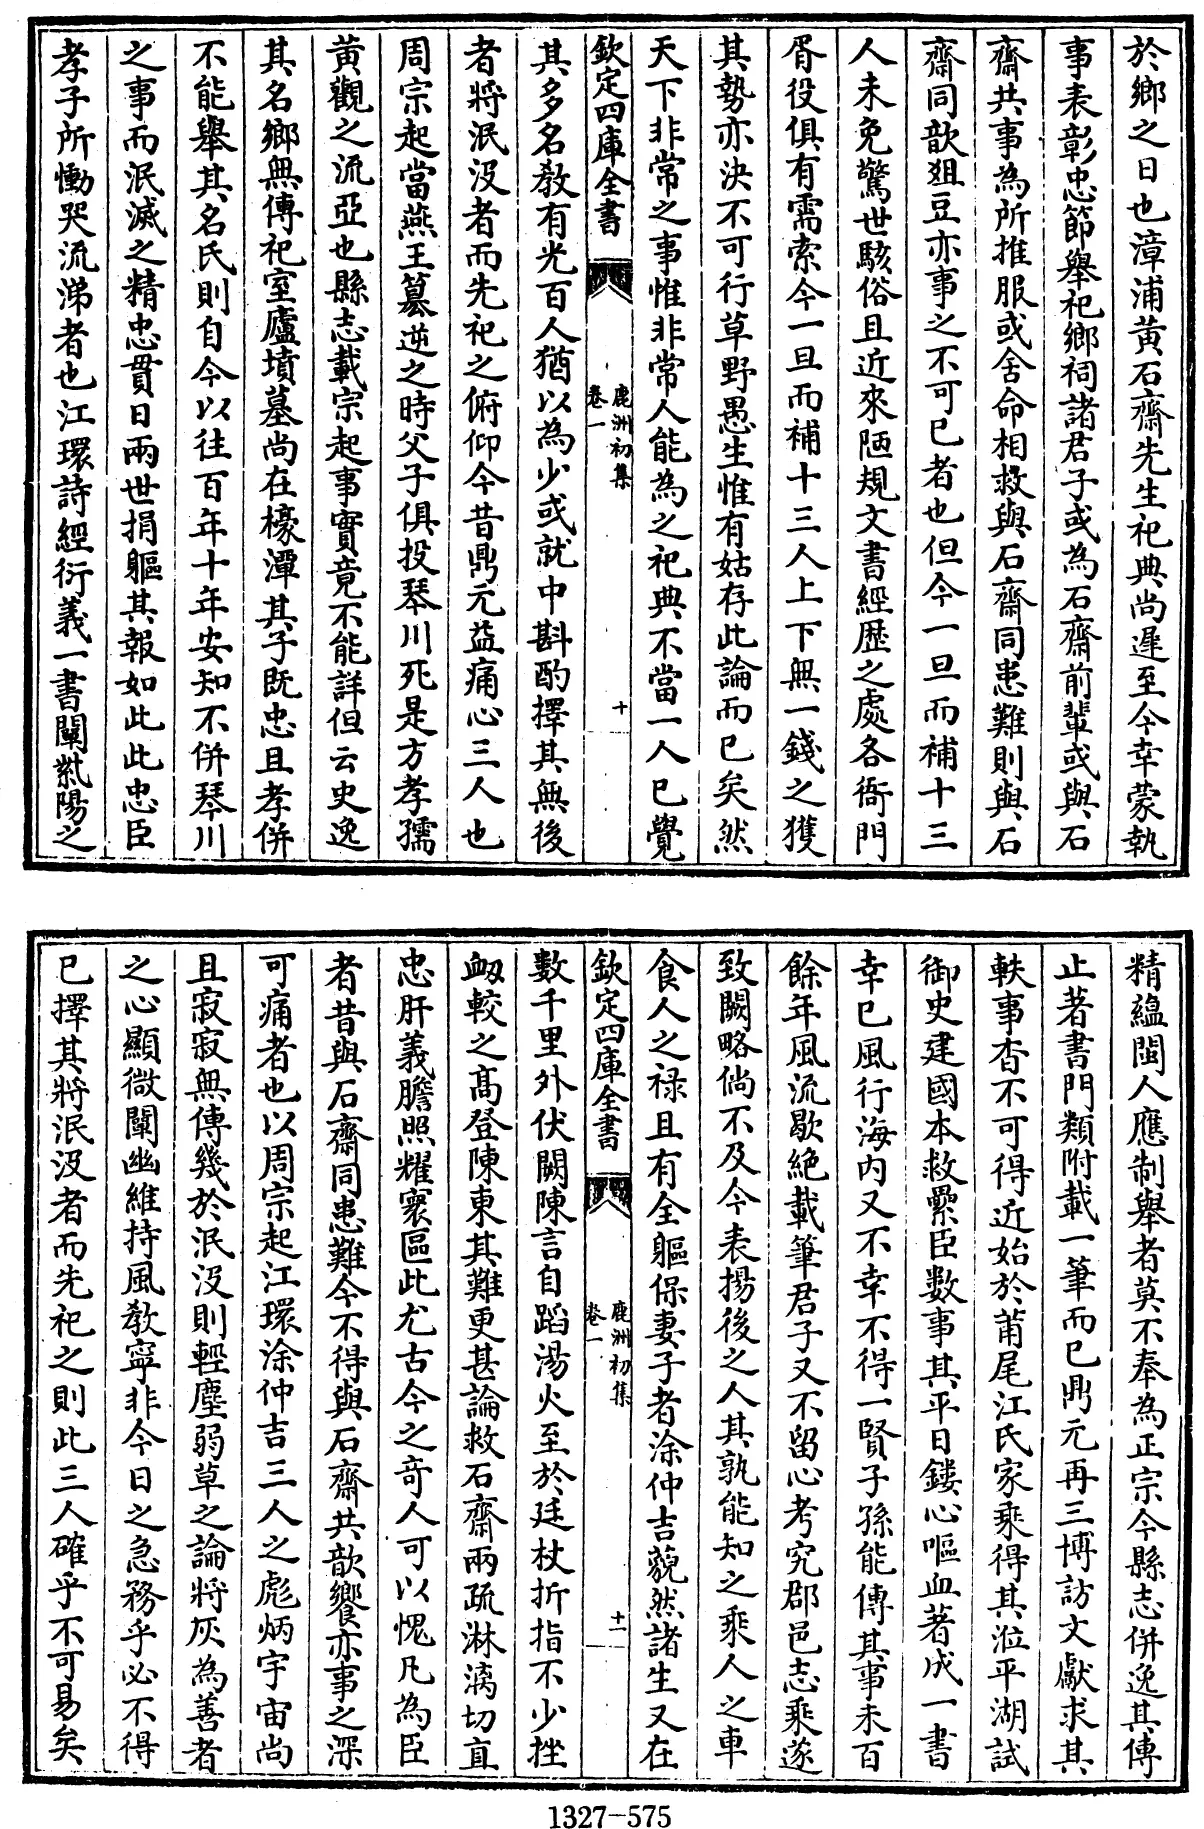 於鄉之日也漳浦黄石齋先生祀典尚遲至今幸蒙執
事表彰忠節舉祀鄉祠諸君子或為石齋前輩或與石
齋共事為所推服或舍命相救與石齋同患難則與石
齋同歆俎豆亦事之不可已者也但今一旦而補十三
人未免驚世駭俗且近來陋規文書經歴之處各衙門
胥役俱有需索今一旦而補十三人上下無一錢之獲
其勢亦決不可行草野愚生惟有姑存此論而已矣然
天下非常之事惟非常人能為之祀典不當一人已覺
欽定四庫全書
鹿洲初集
卷一
十
其多名教有光百人猶以為少或就中斟酌擇其無後
者將泯没者而先祀之俯仰今昔鼎元益痛心三人也
周宗起當燕王簒逆之時父子俱投琴川死是方孝孺
黄觀之流亞也縣志載宗起事實竟不能詳但云史逸
其名鄉無傳祀室廬墳墓尚在檺潭其子既忠且孝併
不能舉其名氏則自今以往百年十年安知不併琴川
之事而泯滅之精忠貫日兩世捐軀其報如此此忠臣
孝子所慟哭流涕者也江環詩經衍義一書闡紫陽之
精藴閩人應制舉者莫不奉為正宗今縣志併逸其傳
止著書門類附載一筆而已鼎元再三博訪文獻求其
軼事杳不可得近始於莆尾江氏家乘得其涖平湖試
御史建國本救纍臣數事其平日鏤心嘔血著成一書
幸已風行海内又不幸不得一賢子孫能傳其事未百
餘年風流歇絶載筆君子又不留心考究郡邑志乘遂
致闕略倘不及今表揚後之人其孰能知之乘人之車
食人之禄且有全軀保妻子者涂仲吉藐然諸生又在
欽定四庫全書
鹿洲初集
卷一
十一
數千里外伏闕陳言自蹈湯火至於廷杖折指不少挫
衂較之髙登陳東其難更甚論救石齋兩疏淋漓切直
忠肝義膽照耀寰區此尤古今之竒人可以愧凡為臣
者昔與石齋同患難今不得與石齋共歆饗亦事之深
可痛者也以周宗起江環涂仲吉三人之彪炳宇宙尚
且寂寂無傳幾於泯没則輕塵弱草之論將灰為善者
之心顯微闡幽維持風教寧非今日之急務乎必不得
已擇其將泯没者而先祀之則此三人確乎不可易矣
1327-575